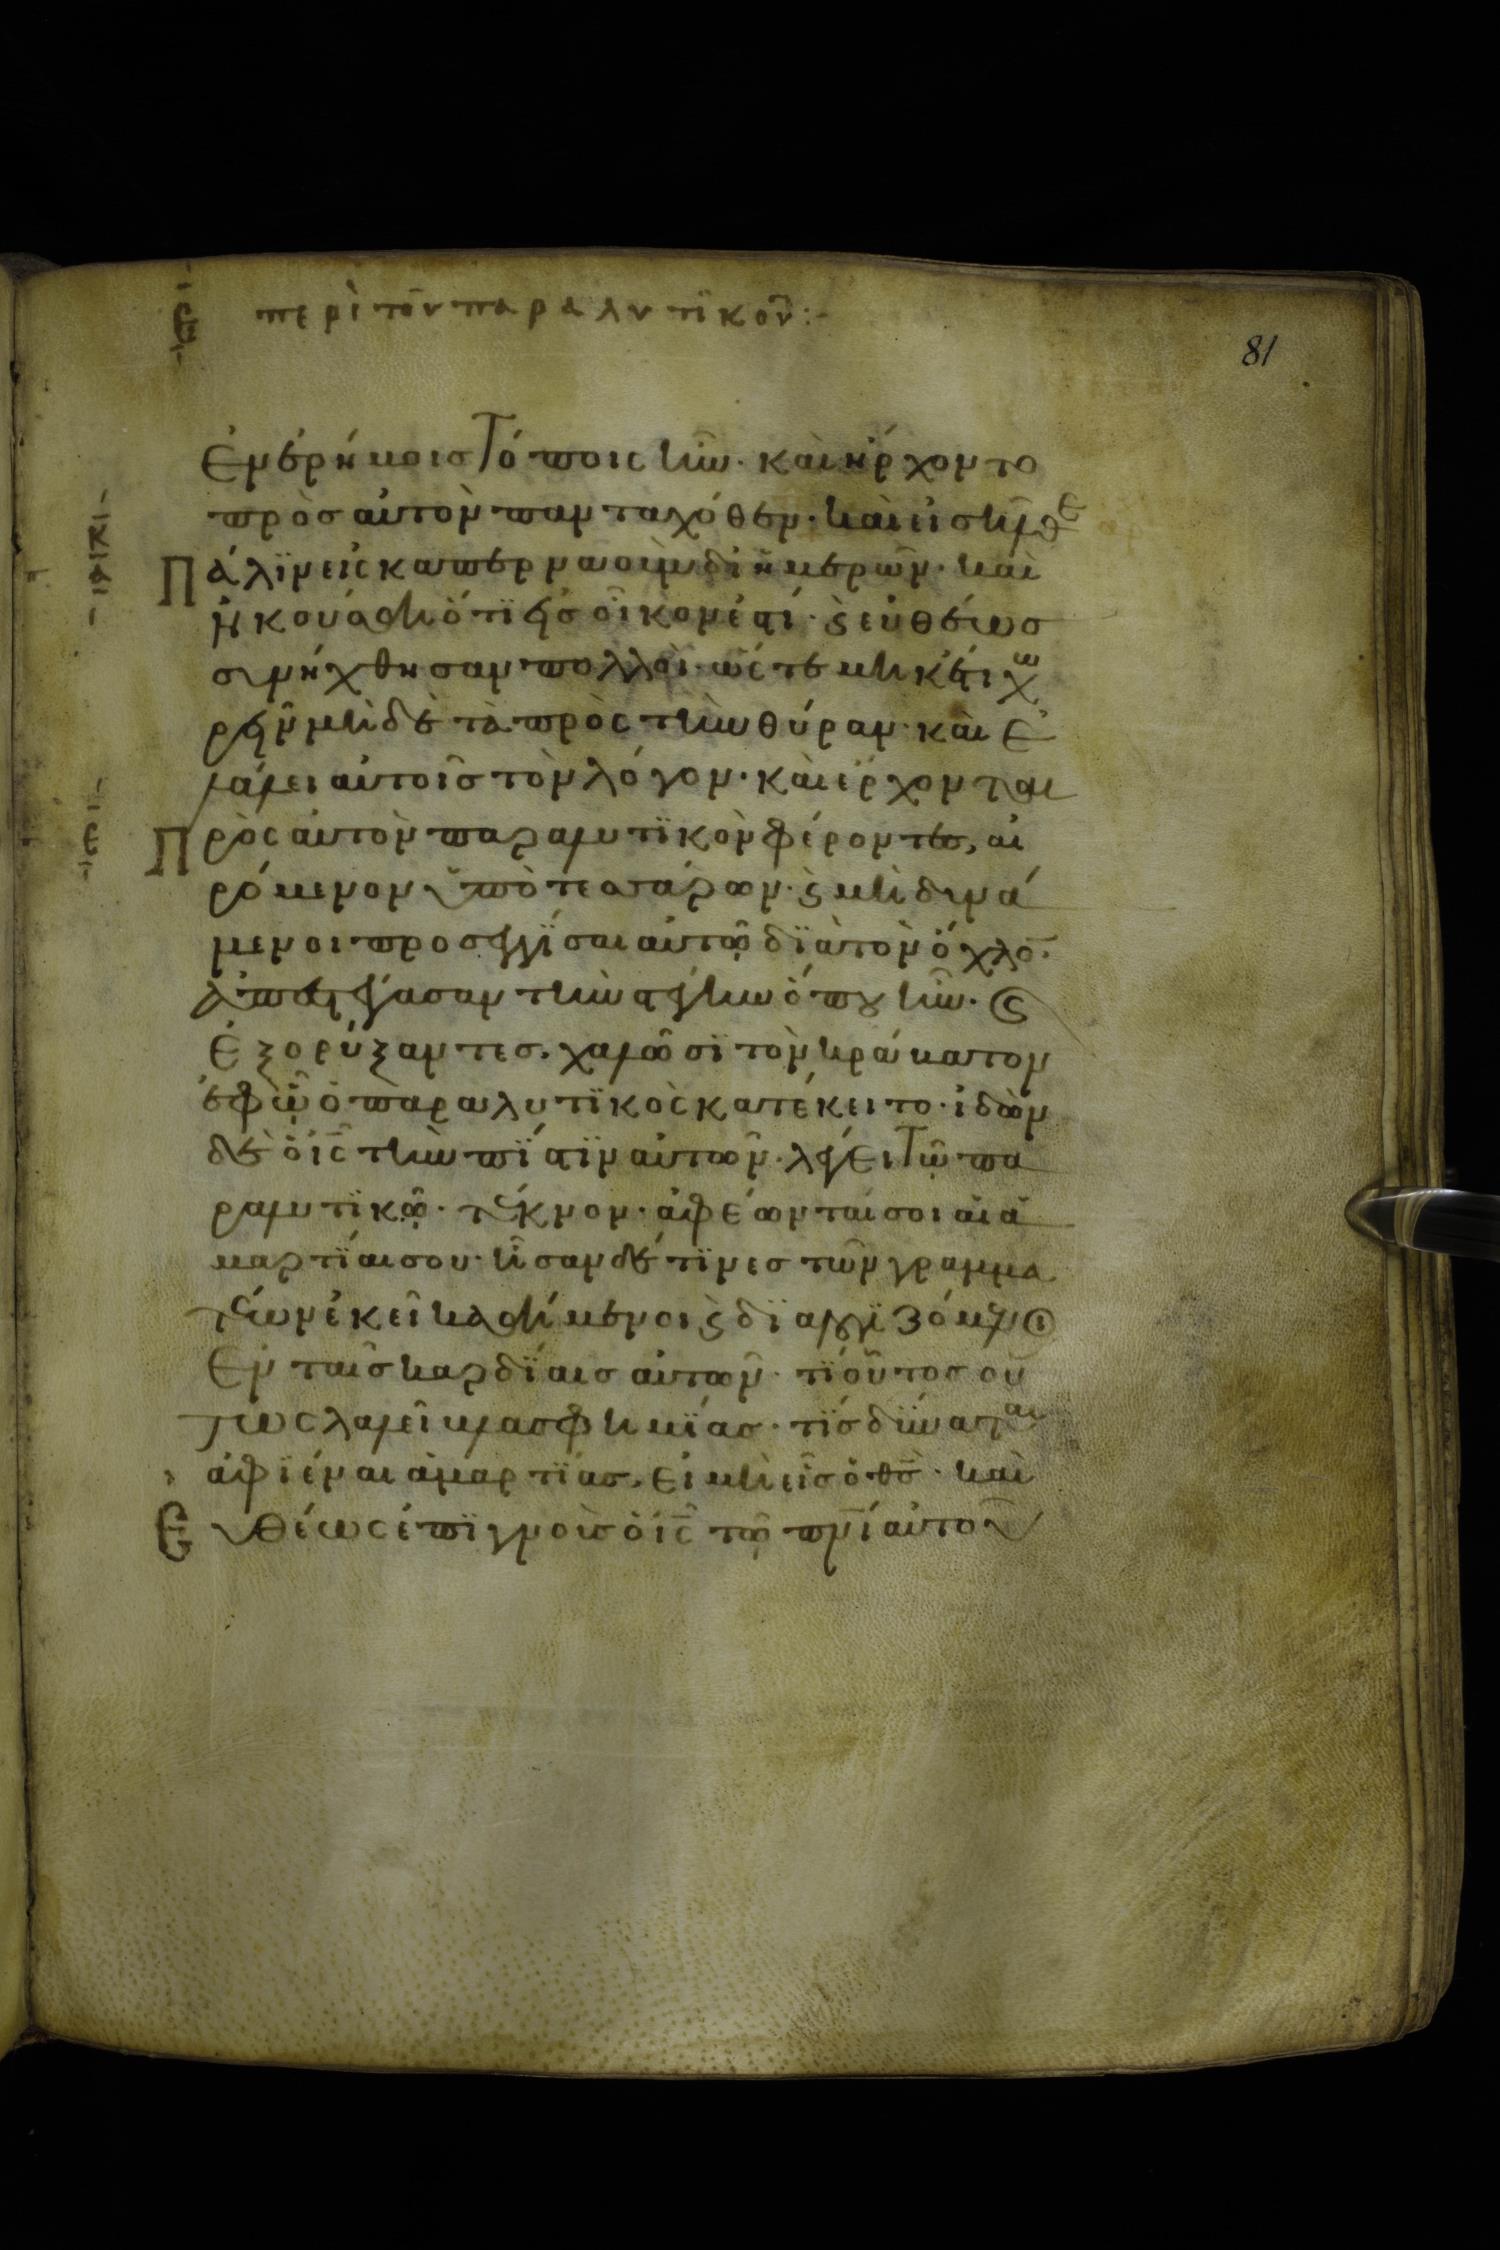 ε περὶ τοῦ παραλυτϊκοῦ:-
81
ἐν ἐρήμοις τόποις ἦν· καὶ ἤρχοντο
πρὸς αὐτὸν πανταχόθεν· καὶ εἰσῆλθε
Πάλϊν εἰς καπερναοὺμ δι ἡμερῶν· καὶ
ἠκούσθη ὅτϊ εἰς οἶκον ἐστί· ϛ εὐθέως
συνήχθησαν πολλοὶ· ὥστε μηκέτι χω
ρεῖν μηδὲ τὰ πρὸς τὴν θύραν· καὶ ἐ
λάλει αὐτοῖς τὸν λόγον· καὶ ἔρχονται
Πρὸς αὐτὸν παραλυτϊκὸν φέροντες, αἰ
ρόμενον ὑπὸ τεσσάρων· ϛ μὴ δυνά
μενοι προσεγγΐσαι αὐτῷ δϊὰ τὸν ὄχλο̅·
ἀπεστέγασαν τὴν στέγην ὅπου ἦν· ϛ
ἐξορύξαντες· χαλῶσϊ τὸν κράβατον
ἐφ ᾧ ὁ παραλυτϊκὸς κατέκειτο· ἰδὼν
δὲ ὁ ι̅ς̅ τὴν πΐστϊν αὐτῶν· λέγει τῷ πα
ραλυτϊκῷ· τέκνον· ἀφέωνταί σοι αἱ ἁ
μαρτΐαι σου· ἦσαν δέ τϊνες τῶν γραμμα
τέων ἐκεῖ καθήμενοι ϛ δϊαλογϊζόμενοι
ἐν ταῖς καρδΐαις αὐτῶν· τΐ οὗτος οὕ
τως λαλεῖ βλασφημΐας· τΐς δύναται
ἀφϊέναι ἁμαρτΐας, εἰ μὴ εἷς ὁ θ̅ς̅· καὶ
Εὐθέως ἐπϊγνοὺς ὁ ι̅ς̅ τῷ π̅ν̅ι̅ αὐτοῦ